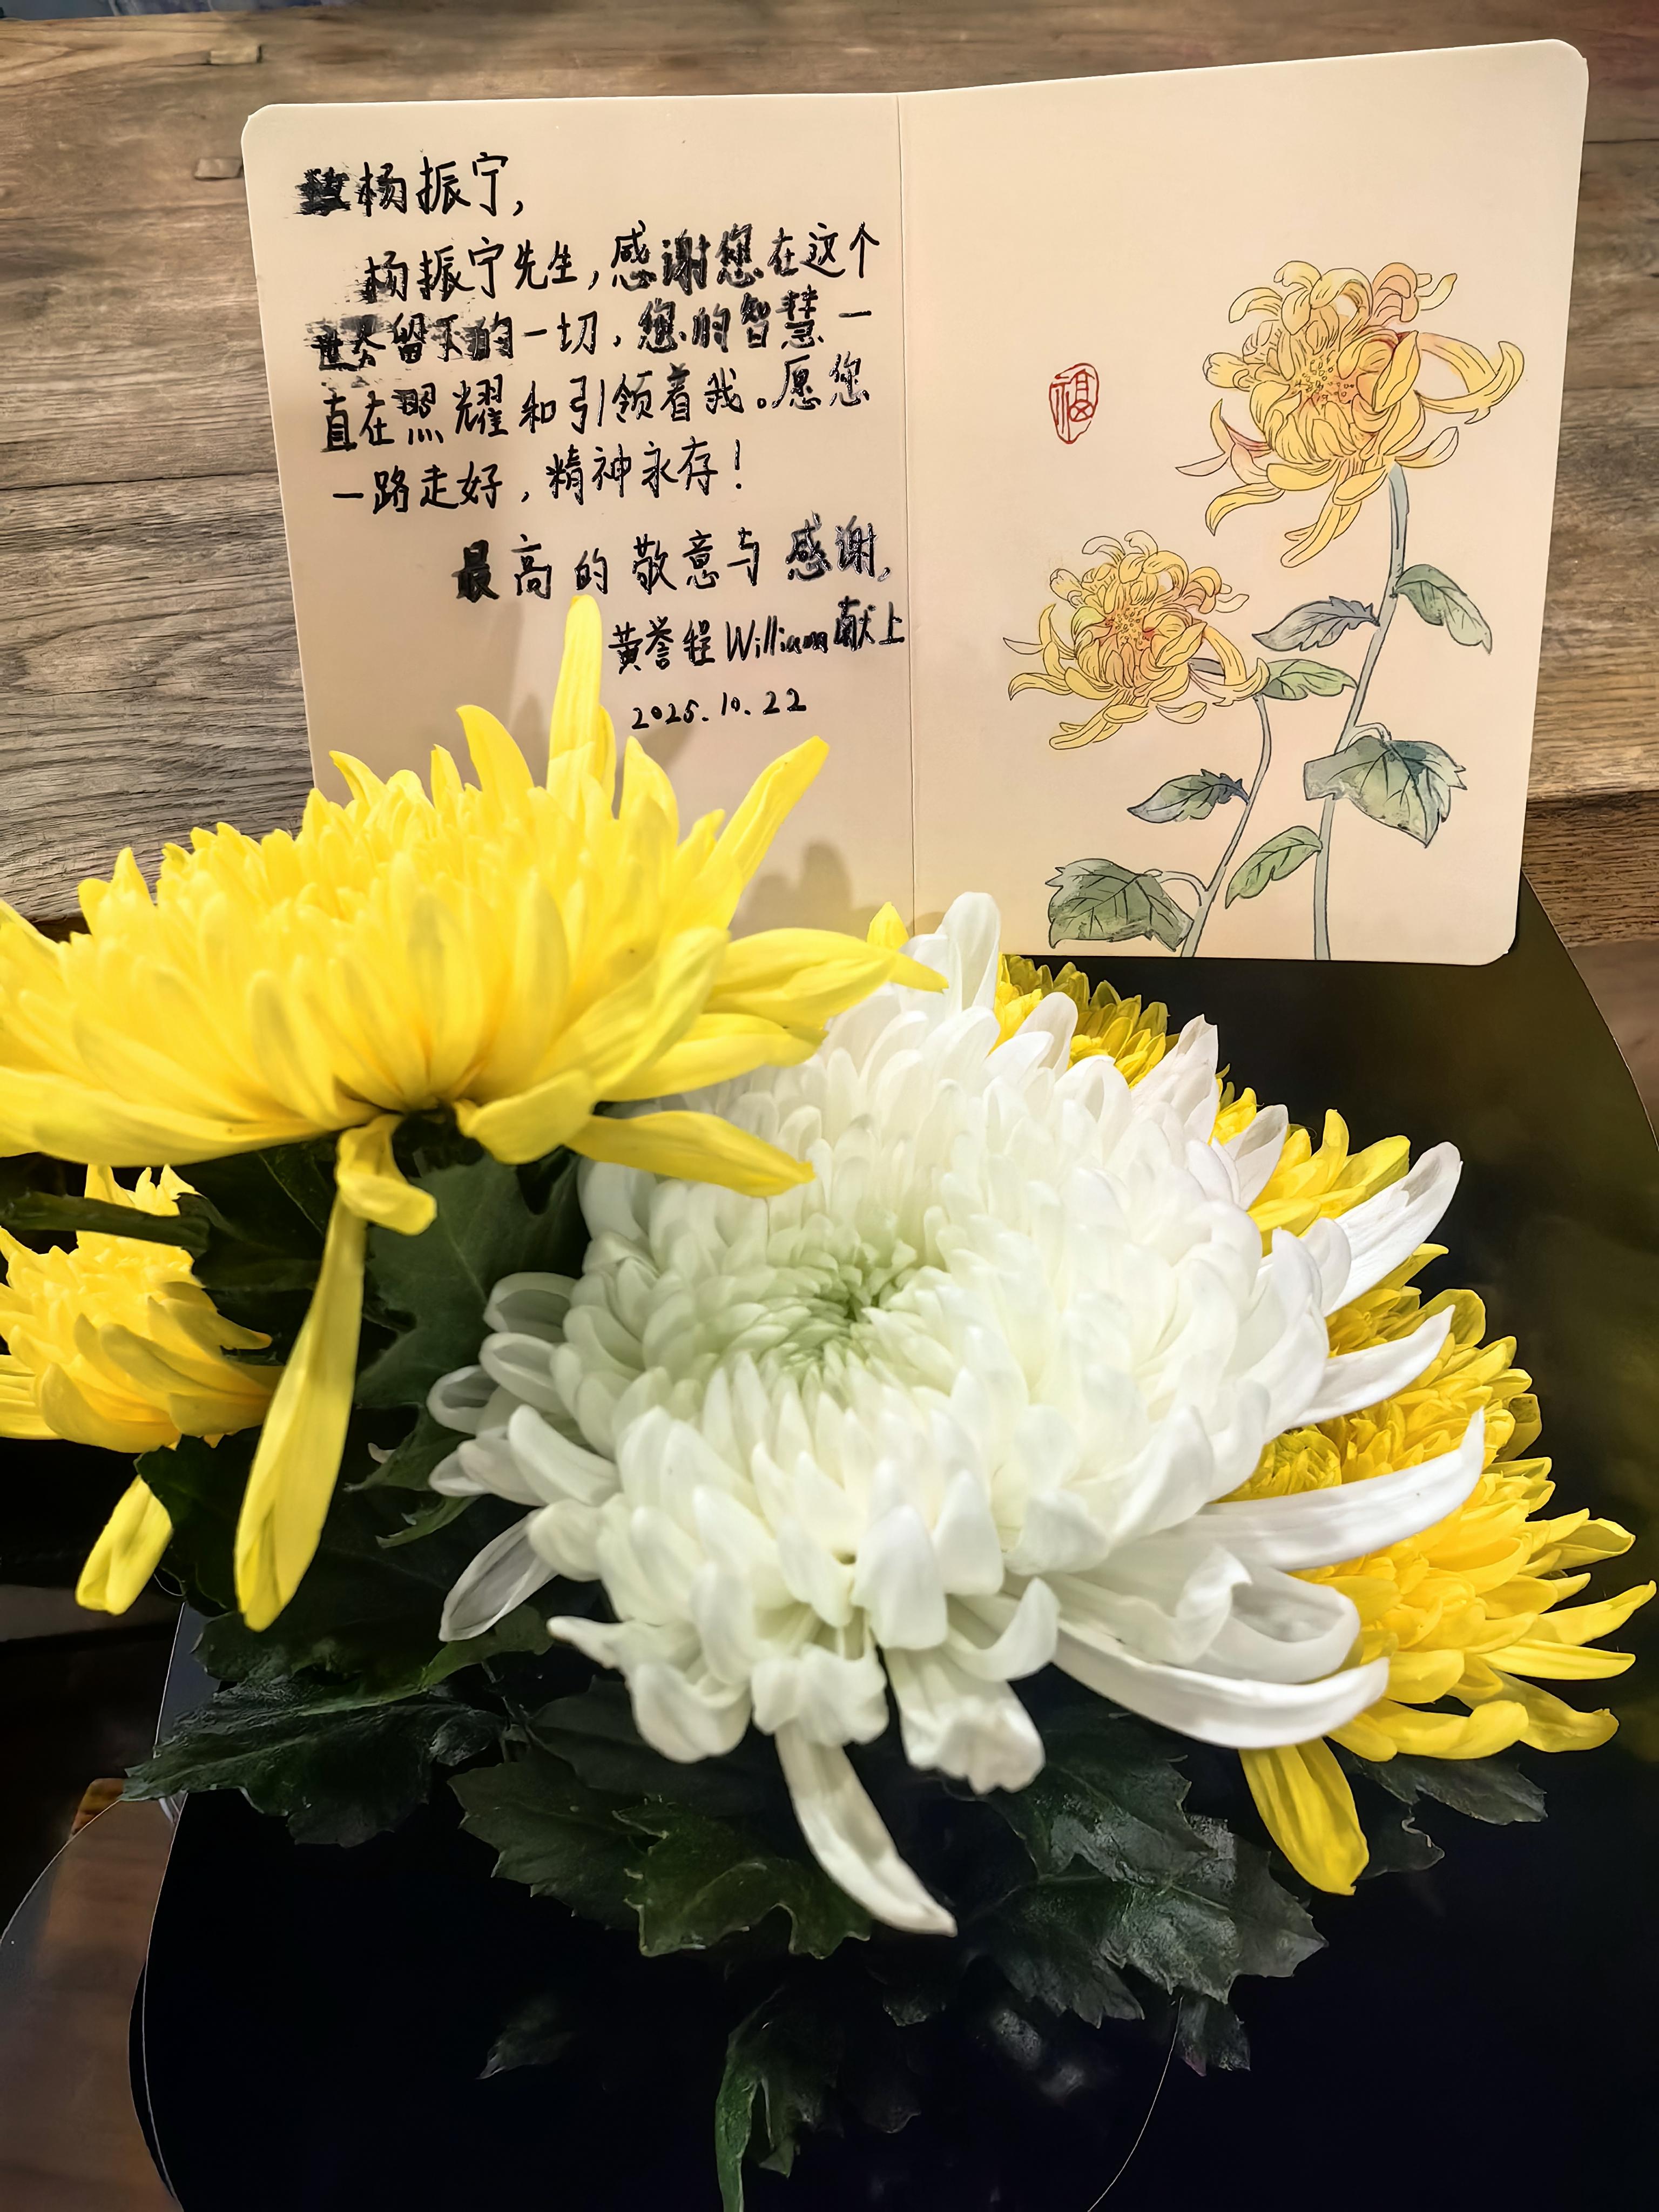 致杨振宁，
杨振宁先生，感谢您在这个
世界留下的一切，您的智慧一
直在照耀和引领着我。愿您
一路走好，精神永存！
最高的敬意与感谢，
黄誉程William献上
2025.10.22
福